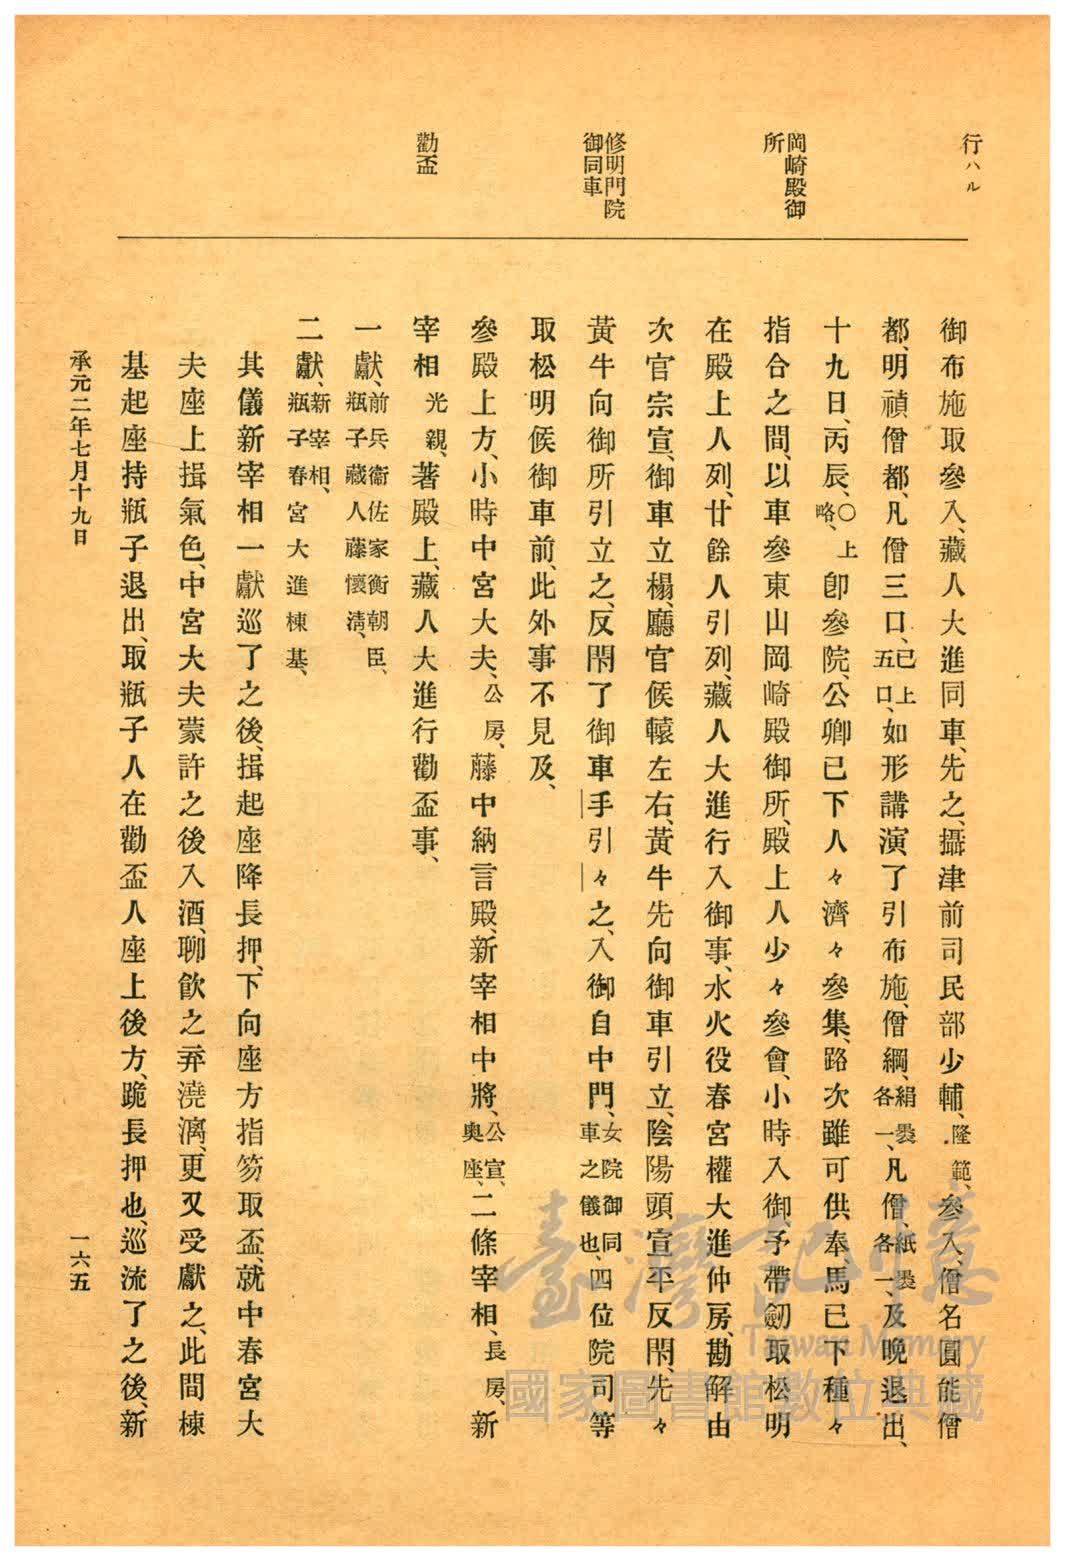 行ハル
岡崎殿御
所
修明門院
御同車
勸盃
御布施取參入、藏人大進同車、先之、攝津前司民部少輔、隆範、參入、僧名圓能僧
都、明禎僧都、凡僧三口、已上五口、如形講演了引布施、僧綱、絹褁各一、凡僧、紙褁各一、及晩退出、
十九日、丙辰、○上略、卽參院、公卿已下人々濟々參集、路次雖可供奉馬已下種々
指合之間、以車參東山岡崎殿御所、殿上人少々參會、小時入御、予帶劔取松明
在殿上人列、廿餘人引列、藏人大進行入御事、水火役春宮權大進仲房、勘解由
次官宗宣、御車立榻、廳官候轅左右、黃牛先向御車引立、陰陽頭宣平反閇、先々
黃牛向御所引立之、反閇了御車手引々之、入御自中門、女院御同車之儀也、四位院司等
取松明候御車前、此外事不見及、
參殿上方、小時中宮大夫、公房、藤中納言殿、新宰相中將、公宣、奧座、二條宰相、長房、新
宰相光親、著殿上、藏人大進行勸盃事、
一獻、前兵衞佐家衡朝臣、瓶子藏人藤懷淸、
二獻、新宰相、瓶子春宮大進棟基、
其儀新宰相一獻巡了之後、揖起座降長押、下向座方指笏取盃、就中春宮大
夫座上揖氣色、中宮大夫蒙許之後入酒、聊飮之弃澆漓、更又受獻之、此間棟
基起座持瓶子退出、取瓶子人在勸盃人座上後方、跪長押也、巡流了之後、新
承元二年七月十九日
一六五
臺灣記憶
Taiwan Memory
國家圖書館數位典藏